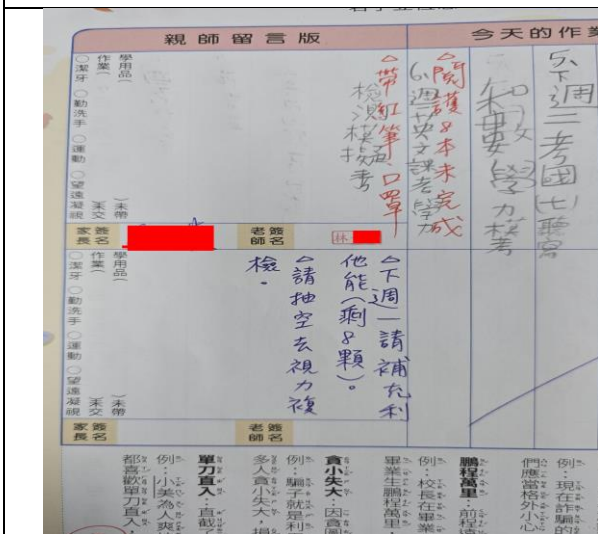 親師留言版
今天的作業
5.下週二考國(七)聽寫
和數學力模考
6.週六英文課考學力
檢測模擬考
△閱護8本未完成
△帶紅筆、口罩
學用品( )未帶
作業( )未交
○潔牙 ○勤洗手 ○運動 ○望遠凝視
老師簽名
林
家長簽名
△下週一請補充利
他能(剩8顆)。
△請抽空去視力複
檢。
學用品( )未帶
作業( )未交
○潔牙 ○勤洗手 ○運動 ○望遠凝視
老師簽名
家長簽名
例:現在詐騙的
們應當格外小心
鵬程萬里:前程遠
例:校長在畢業
畢業生鵬程萬里,
貪小失大:因貪圖
例:騙子就是利
多人貪小失大,損
單刀直入:直截了
例:小美為人爽
都喜歡單刀直入,